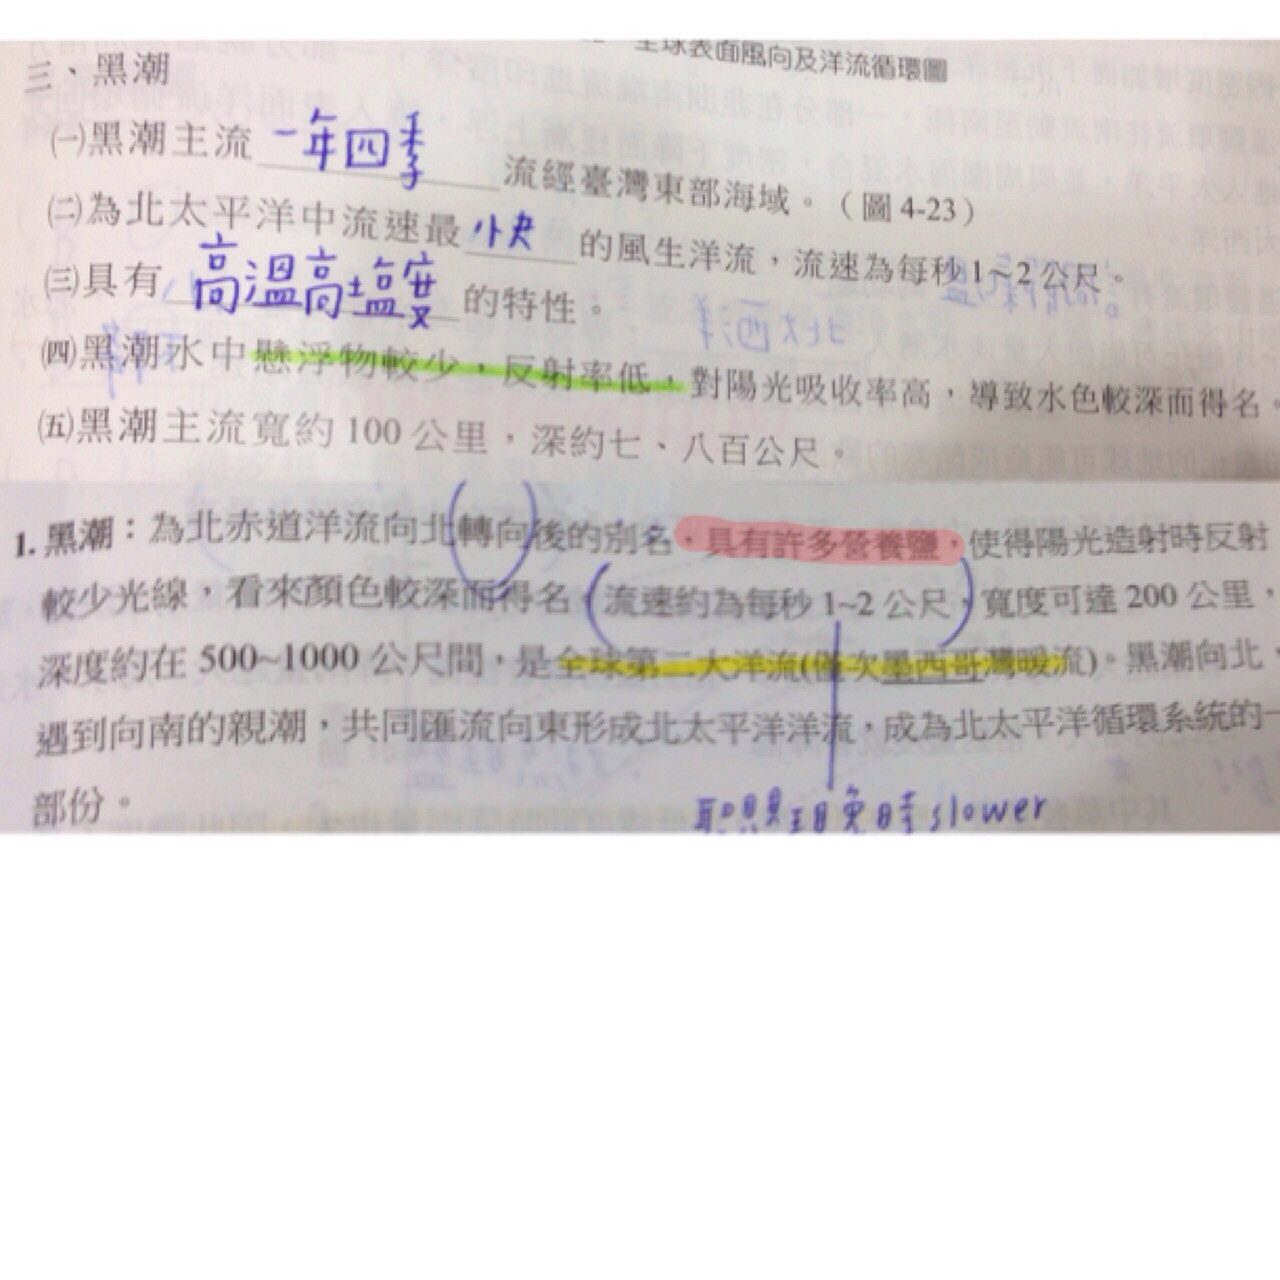 全球表面風向及洋流循環圖
三、黑潮
㈠黑潮主流 一年四季 流經臺灣東部海域。(圖4-23)
㈡為北太平洋中流速最 快 的風生洋流，流速為每秒1~2公尺。
㈢具有 高溫高塩度 的特性。
㈣黑潮水中懸浮物較少，反射率低，對陽光吸收率高，導致水色較深而得名。
㈤黑潮主流寬約100公里，深約七、八百公尺。
1. 黑潮：為北赤道洋流向北轉向後的別名，具有許多營養鹽，使得陽光造射時反射
較少光線，看來顏色較深而得名(流速約為每秒1~2公尺，)寬度可達200公里，
深度約在500~1000公尺間，是全球第二大洋流(僅次墨西哥灣暖流)。黑潮向北，
遇到向南的親潮，共同匯流向東形成北太平洋洋流，成為北太平洋循環系統的一
部份。
時slower